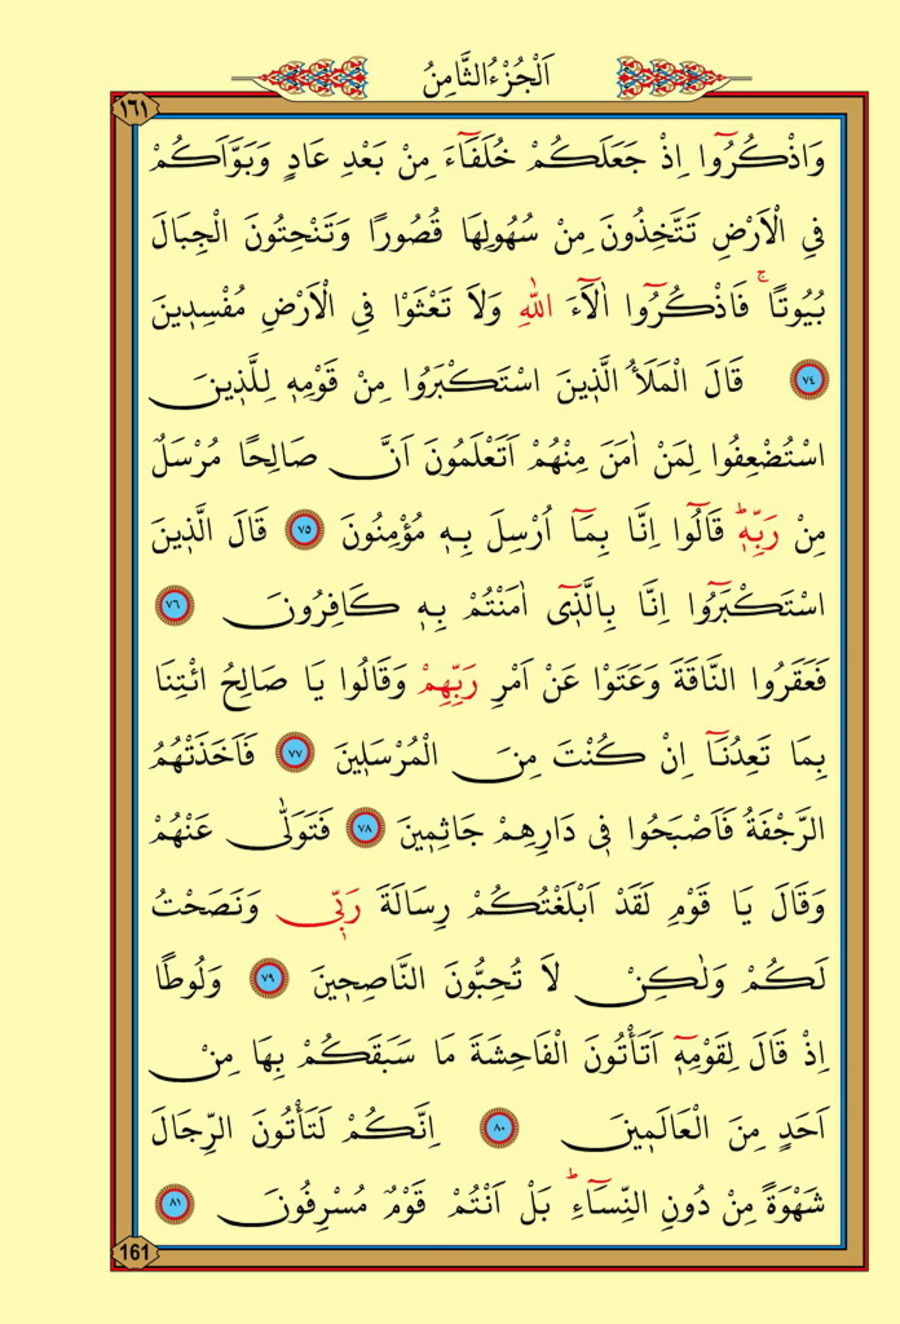 اَلْجُزْءُ الثَّامِنُ
١٦١
وَاذْكُرُٓوا اِذْ جَعَلَكُمْ خُلَفَٓاءَ مِنْ بَعْدِ عَادٍ وَبَوَّاَكُمْ
فِي الْاَرْضِ تَتَّخِذُونَ مِنْ سُهُولِهَا قُصُورًا وَتَنْحِتُونَ الْجِبَالَ
بُيُوتًاۚ فَاذْكُرُٓوا اٰلَٓاءَ اللّٰهِ وَلَا تَعْثَوْا فِي الْاَرْضِ مُفْسِدٖينَ
٧٤ قَالَ الْمَلَأُ الَّذٖينَ اسْتَكْبَرُوا مِنْ قَوْمِهٖ لِلَّذٖينَ
اسْتُضْعِفُوا لِمَنْ اٰمَنَ مِنْهُمْ اَتَعْلَمُونَ اَنَّ صَالِحًا مُرْسَلٌ
مِنْ رَبِّهٖؕ قَالُٓوا اِنَّا بِمَٓا اُرْسِلَ بِهٖ مُؤْمِنُونَ ٧٥ قَالَ الَّذٖينَ
اسْتَكْبَرُٓوا اِنَّا بِالَّذٖٓى اٰمَنْتُمْ بِهٖ كَافِرُونَ ٧٦
فَعَقَرُوا النَّاقَةَ وَعَتَوْا عَنْ اَمْرِ رَبِّهِمْ وَقَالُوا يَا صَالِحُ ائْتِنَا
بِمَا تَعِدُنَٓا اِنْ كُنْتَ مِنَ الْمُرْسَلٖينَ ٧٧ فَاَخَذَتْهُمُ
الرَّجْفَةُ فَاَصْبَحُوا فٖي دَارِهِمْ جَاثِمٖينَ ٧٨ فَتَوَلّٰى عَنْهُمْ
وَقَالَ يَا قَوْمِ لَقَدْ اَبْلَغْتُكُمْ رِسَالَةَ رَبّٖى وَنَصَحْتُ
لَكُمْ وَلٰكِنْ لَا تُحِبُّونَ النَّاصِحٖينَ ٧٩ وَلُوطًا
اِذْ قَالَ لِقَوْمِهٖٓ اَتَأْتُونَ الْفَاحِشَةَ مَا سَبَقَكُمْ بِهَا مِنْ
اَحَدٍ مِنَ الْعَالَمٖينَ ٨٠ اِنَّكُمْ لَتَأْتُونَ الرِّجَالَ
شَهْوَةً مِنْ دُونِ النِّسَٓاءِؕ بَلْ اَنْتُمْ قَوْمٌ مُسْرِفُونَ ٨١
161